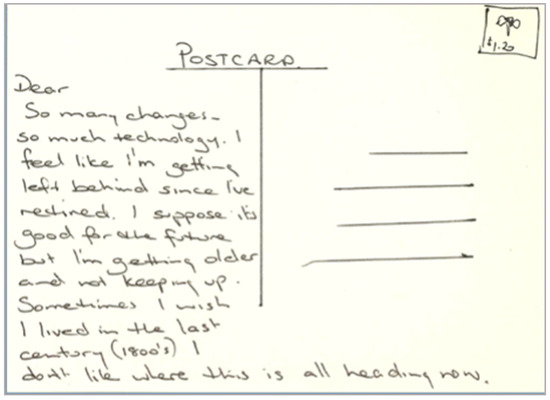 POSTCARD
$1.20
Dear
So many changes-
so much technology. I
feel like I'm getting
left behind since I've
retired. I suppose it's
good for the future
but I'm getting older
and not keeping up.
Sometimes I wish
I lived in the last
century (1800's) I
don't like where this is all heading now.